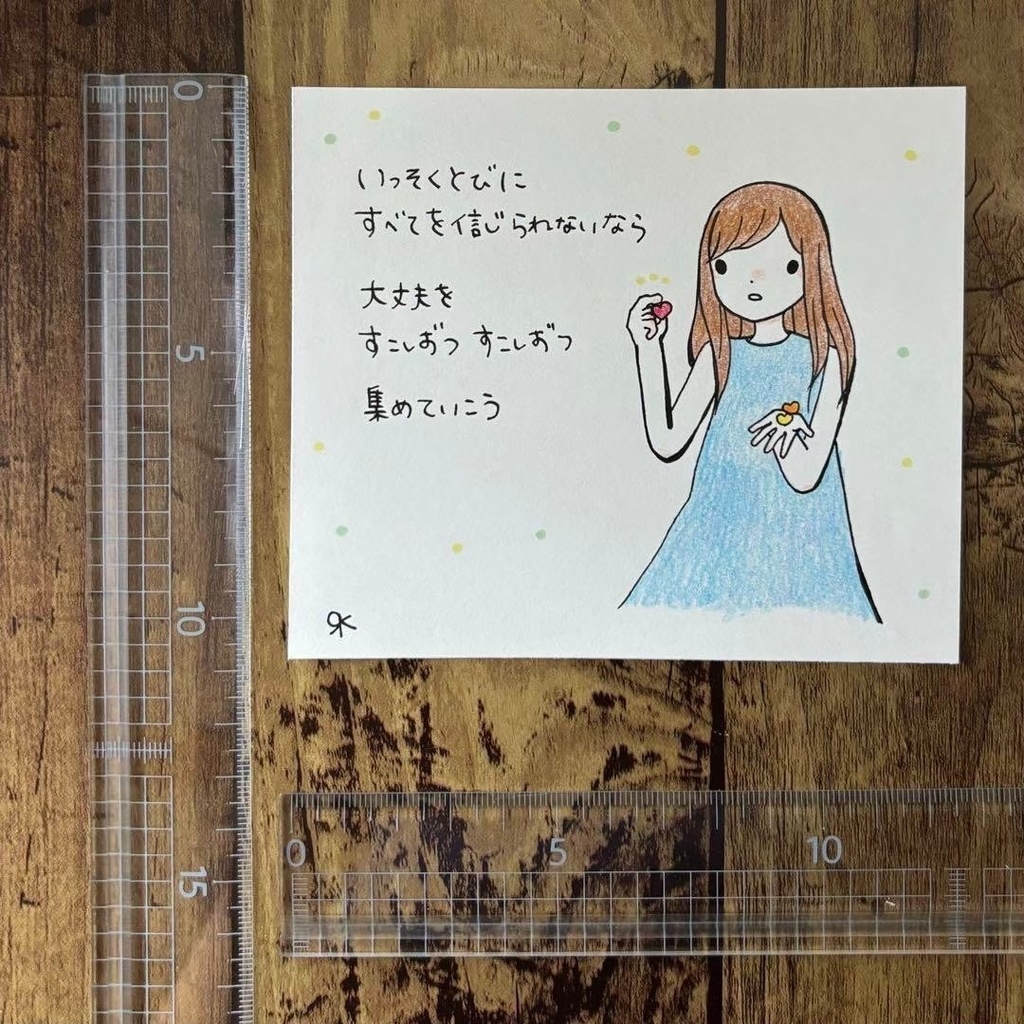 いっそくとびに
すべてを信じられないなら
大丈夫を
すこしずつ すこしずつ
集めていこう
0
5
10
15
0
5
10